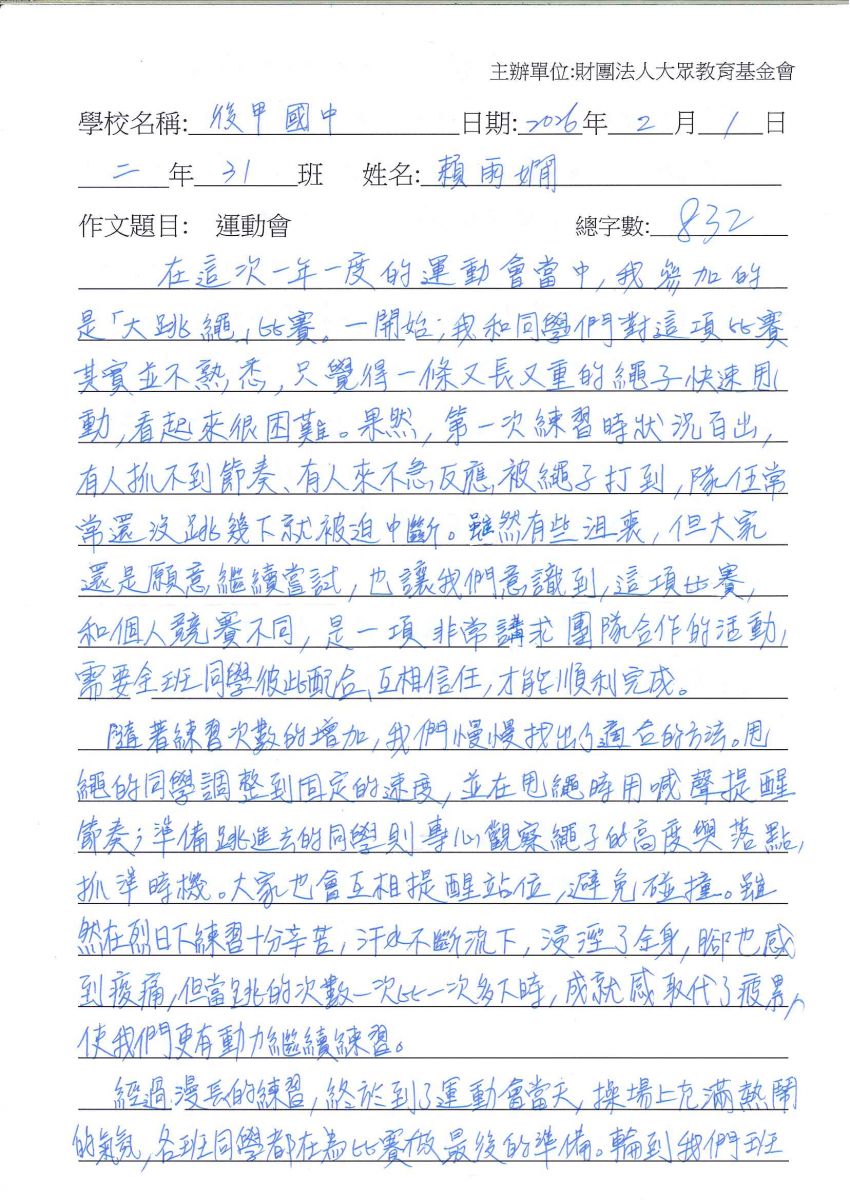 主辦單位:財團法人大眾教育基金會
學校名稱: 後甲國中 日期: 2026 年 2 月 1 日
二 年 31 班 姓名: 賴雨嫺
作文題目: 運動會 總字數: 832
在這次一年一度的運動會當中,我參加的
是「大跳繩」比賽。一開始,我和同學們對這項比賽
其實並不熟悉,只覺得一條又長又重的繩子快速甩
動,看起來很困難。果然,第一次練習時狀況百出,
有人抓不到節奏、有人來不急反應被繩子打到,隊伍常
常還沒跳幾下就被迫中斷。雖然有些沮喪,但大家
還是願意繼續嘗試,也讓我們意識到,這項比賽,
和個人競賽不同,是一項非常講求團隊合作的活動,
需要全班同學彼此配合、互相信任,才能順利完成。
隨著練習次數的增加,我們慢慢找出了適合的方法。甩
繩的同學調整到固定的速度,並在甩繩時用喊聲提醒
節奏;準備跳進去的同學則專心觀察繩子的高度與落點,
抓準時機。大家也會互相提醒站位,避免碰撞。雖
然在烈日下練習十分辛苦,汗水不斷流下,浸溼了全身,腳也感
到痠痛,但當跳的次數一次比一次多下時,成就感取代了疲累,
使我們更有動力繼續練習。
經過漫長的練習,終於到了運動會當天,操場上充滿熱鬧
的氣氛,各班同學都在為比賽做最後的準備。輪到我們班